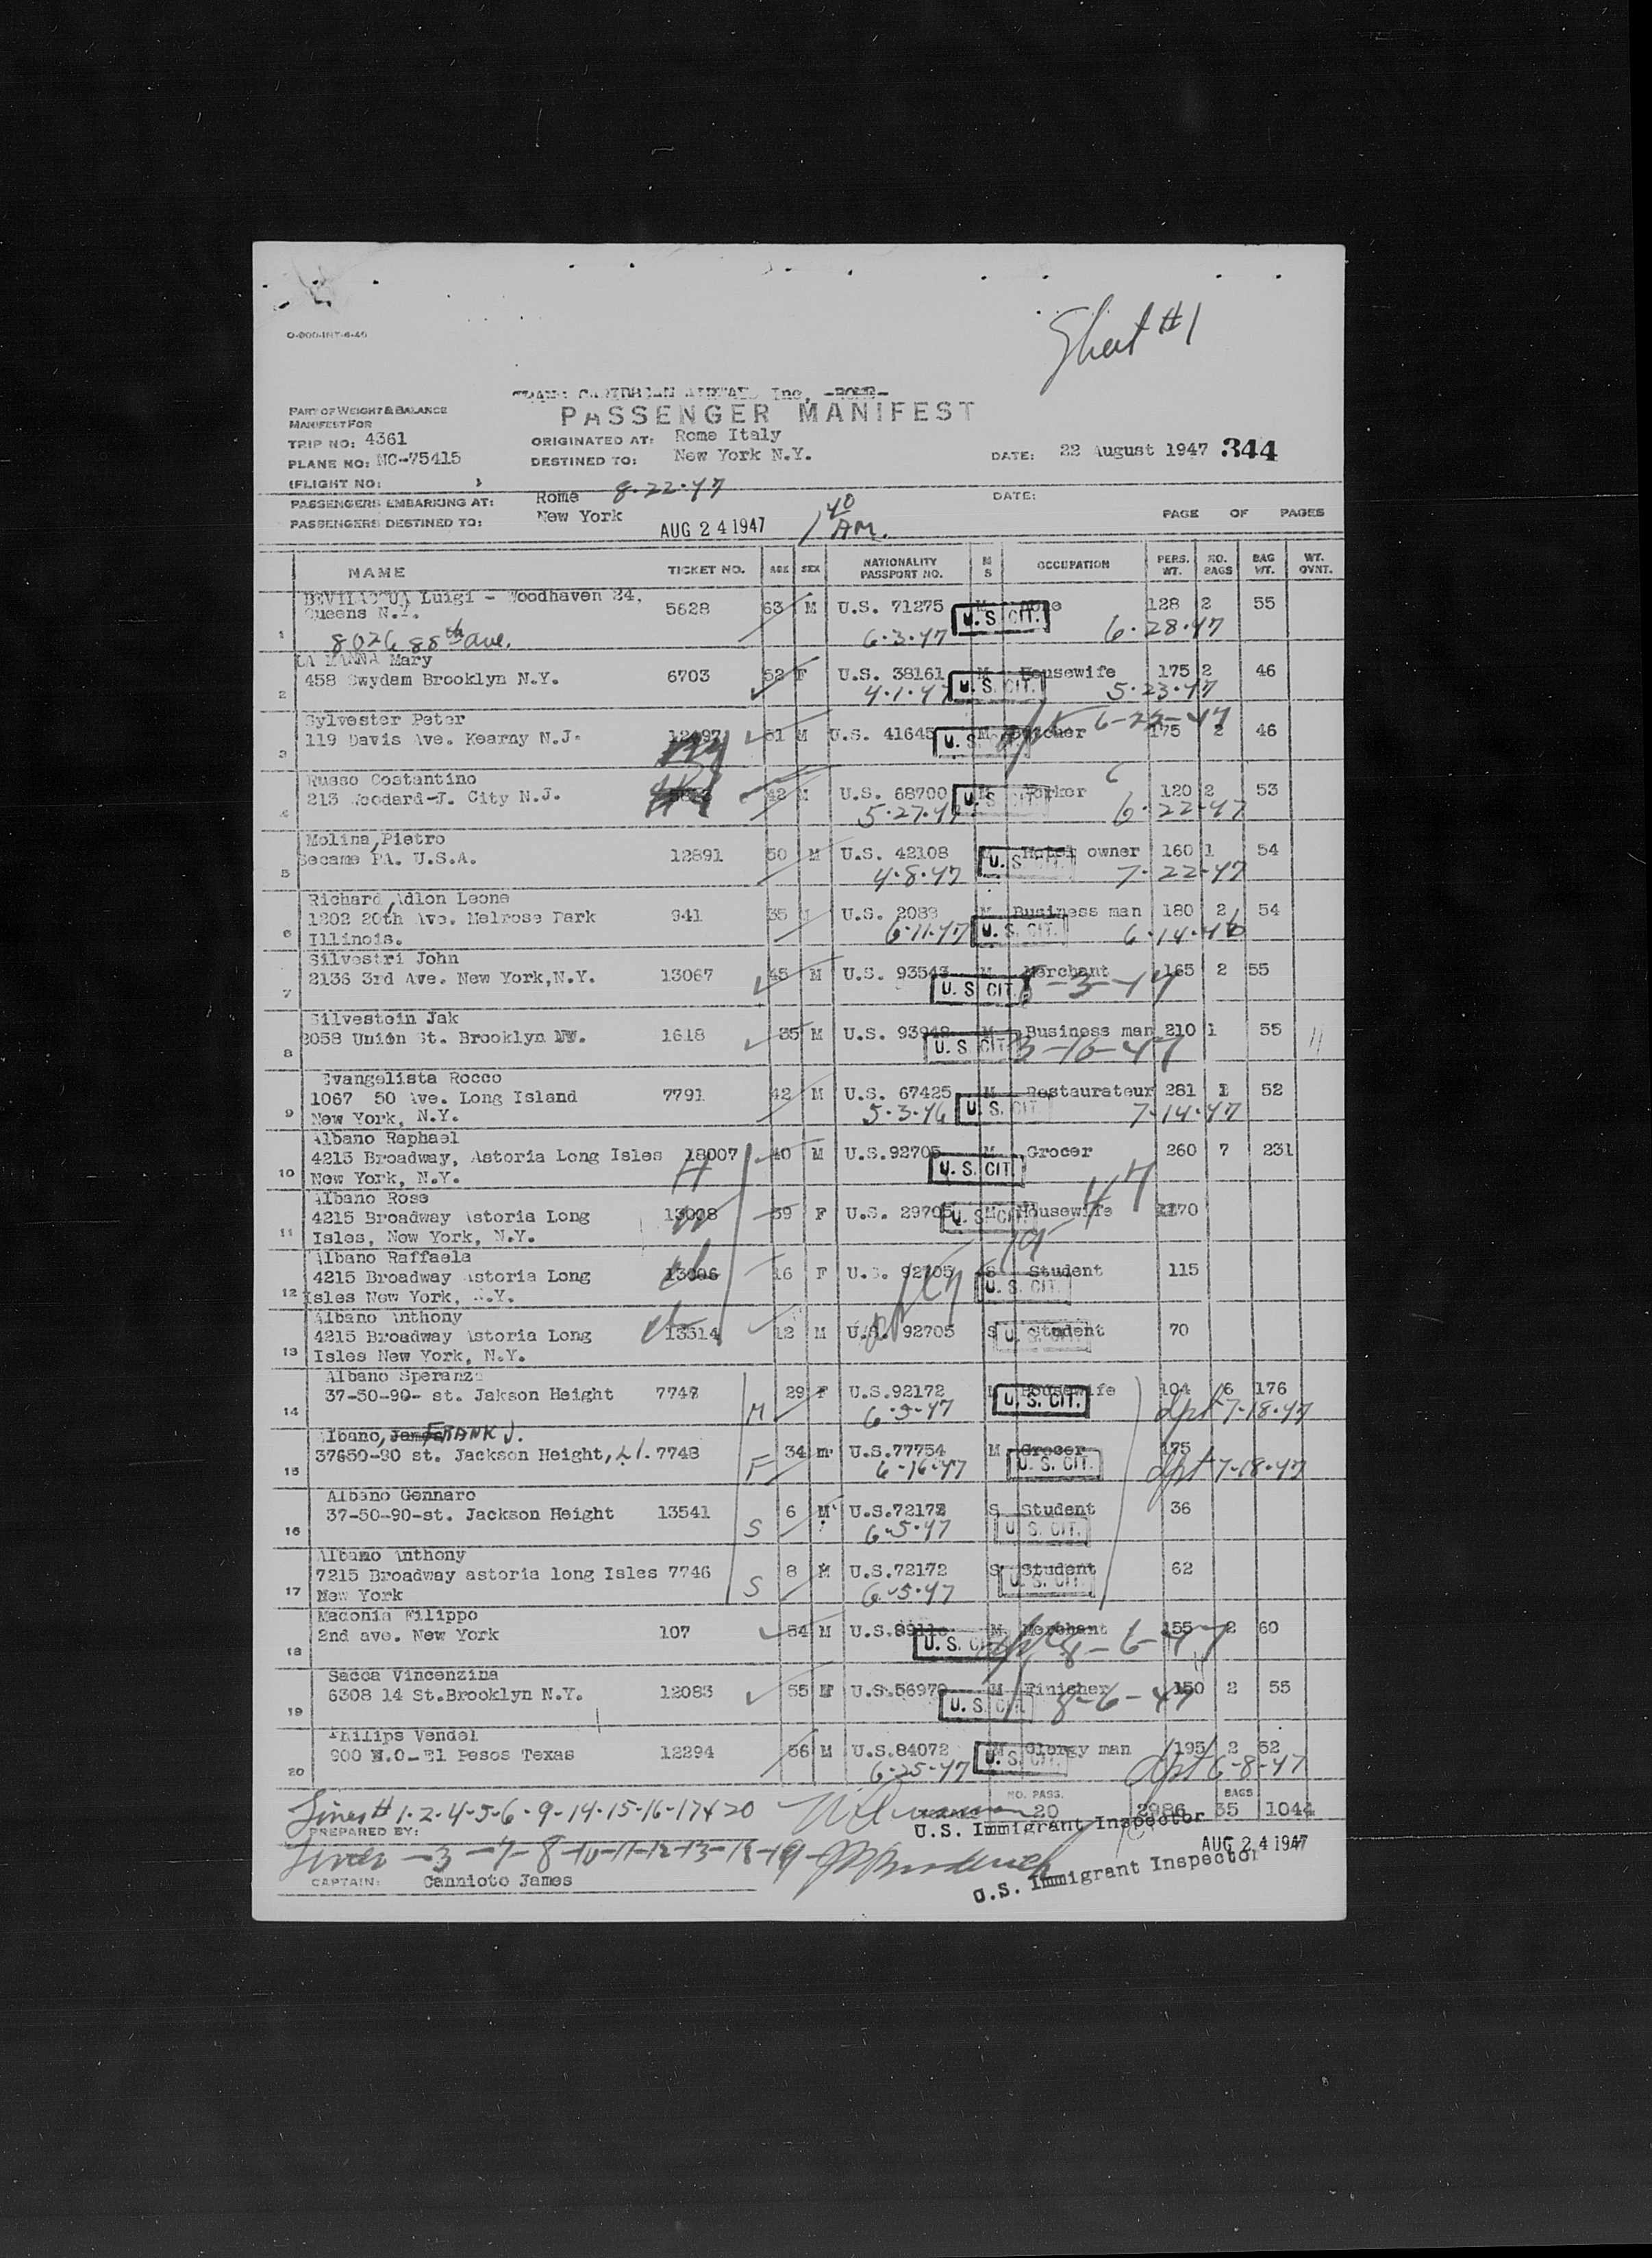 Sheet #1
O-900-INT-4-46
TRANS CARIBBEAN Inc. -ROME-
PASSENGER MANIFEST
PART OF WEIGHT & BALANCE
MANIFEST FOR
TRIP NO: 4361 ORIGINATED AT: Rome Italy
PLANE NO: NC-75415 DESTINED TO: New York N.Y. DATE: 22 August 1947 344
(FLIGHT NO: )
PASSENGERS EMBARKING AT: Rome 8-22-47 DATE:
PASSENGERS DESTINED TO: New York AUG 24 1947 1 40 AM. PAGE OF PAGES
NAME TICKET NO. AGE SEX NATIONALITY PASSPORT NO. M S OCCUPATION PERS. WT. NO. BAGS BAG WT. WT. OVNT.
BEVILACQUA Luigi - Woodhaven 24,
Queens N.Y. 5628 63 M U.S. 71275 U.S. CIT. 128 2 55
1 8026 88th ave. 6-3-47 6-28-47
LA MANNA Mary
458 Swydam Brooklyn N.Y. 6703 52 F U.S. 38161 M Housewife 175 2 46
2 4-1-47 U.S. CIT. 5-23-47
Sylvester Peter 6-22-47
119 Davis Ave. Kearny N.J. 12497 51 M U.S. 41645 U.S. M Butcher 175 2 46
3
Russo Costantino
213 Woodard-J. City N.J. 42 M U.S. 68700 U.S. CIT. Worker 120 2 53
4 5-27-47 6-22-47
Molina, Pietro
Secame PA. U.S.A. 12891 50 M U.S. 42108 U.S. Hotel owner 160 1 54
5 4-8-47 7-22-47
Richard, Adlon Leone
1802 20th Ave. Melrose Park 941 35 U.S. 2089 M Business man 180 2 54
6 Illinois. 6-11-47 U.S. CIT. 6-14-46
Silvestri John
2136 3rd Ave. New York, N.Y. 13067 45 M U.S. 93543 M Merchant 165 2 55
7 U.S. CIT. 8-3-47
Silvestein Jak
2058 Union St. Brooklyn NY. 1618 35 M U.S. 93948 M Business man 210 1 55
8 U.S. CIT. 3-16-47
Evangelista Rocco
1067 50 Ave. Long Island 7791 42 M U.S. 67425 M Restaurateur 281 1 52
9 New York, N.Y. 5-3-46 U.S. CIT. 7-14-47
Albano Raphael
4215 Broadway, Astoria Long Isles 13007 40 M U.S. 92705 M Grocer 260 7 231
10 New York, N.Y. H U.S. CIT.
Albano Rose
4215 Broadway Astoria Long 13008 39 F U.S. 29705 U.S. CIT. M Housewife 170
11 Isles, New York, N.Y. W
Albano Raffaela
4215 Broadway Astoria Long 13006 16 F U.S. 92705 S Student 115
12 Isles New York, N.Y. U.S. CIT.
Albano Anthony
4215 Broadway Astoria Long 13514 12 M U.S. 92705 S Student 70
13 Isles New York, N.Y. U.S. CIT.
Albano Speranza
37-50-90- st. Jakson Height 7747 29 F U.S. 92172 Housewife 104 6 176
14 M 6-3-47 U.S. CIT. dpt 7-18-47
Albano, James FRANK J.
37-50-90 st. Jackson Height, L.I. 7748 34 m U.S. 77754 M Grocer 175
15 F 6-16-47 U.S. CIT. dpt 7-18-47
Albano Gennaro
37-50-90-st. Jackson Height 13541 6 M U.S. 72172 S Student 36
16 S 6-5-47 U.S. CIT.
Albano Anthony
7215 Broadway astoria long Isles 7746 8 M U.S. 72172 S Student 62
17 New York S 6-5-47 U.S. CIT.
Madonia Filippo
2nd ave. New York 107 54 M U.S. M Merchant 155 2 60
18 U.S. CIT. 8-6-47
Sacca Vincenzina
6308 14 St. Brooklyn N.Y. 12083 55 F U.S. 56979 M Finisher 150 2 55
19 U.S. CIT. 8-6-47
Philips Vendel
900 N.O-El Pesos Texas 12294 56 M U.S. 84072 Clergy man 195 2 52
20 6-25-47 U.S. CIT. dpt 6-8-47
NO. PASS. BAGS
Lines # 1-2-4-5-6-9-14-15-16-17 & 20 20 2986 35 1044
PREPARED BY: U.S. Immigrant Inspector
Lines -3-7-8-10-11-12-13-18-19 AUG 24 1947
CAPTAIN: Cannioto James U.S. Immigrant Inspector